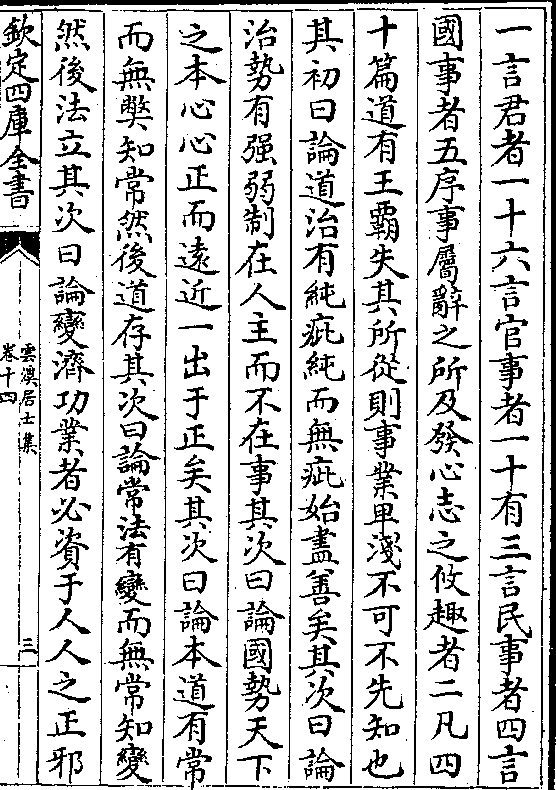 一言君者一十六言官事者一十有三言民事者四言
國事者五序事屬辭之所及發心志之攸趣者二凡四
十篇道有王霸失其所從則事業卑淺不可不先知也
其初曰論道治有純疵純而無疵始盡善矣其次曰論
治勢有强弱制在人主而不在事其次曰論國勢天下
之本心心正而遠近一出于正矣其次曰論本道有常
而無弊知常然後道存其次曰論常法有變而無常知變
然後法立其次曰論變濟功業者必資于人人之正邪
欽定四庫全書
雲溪居士集
卷十四
三